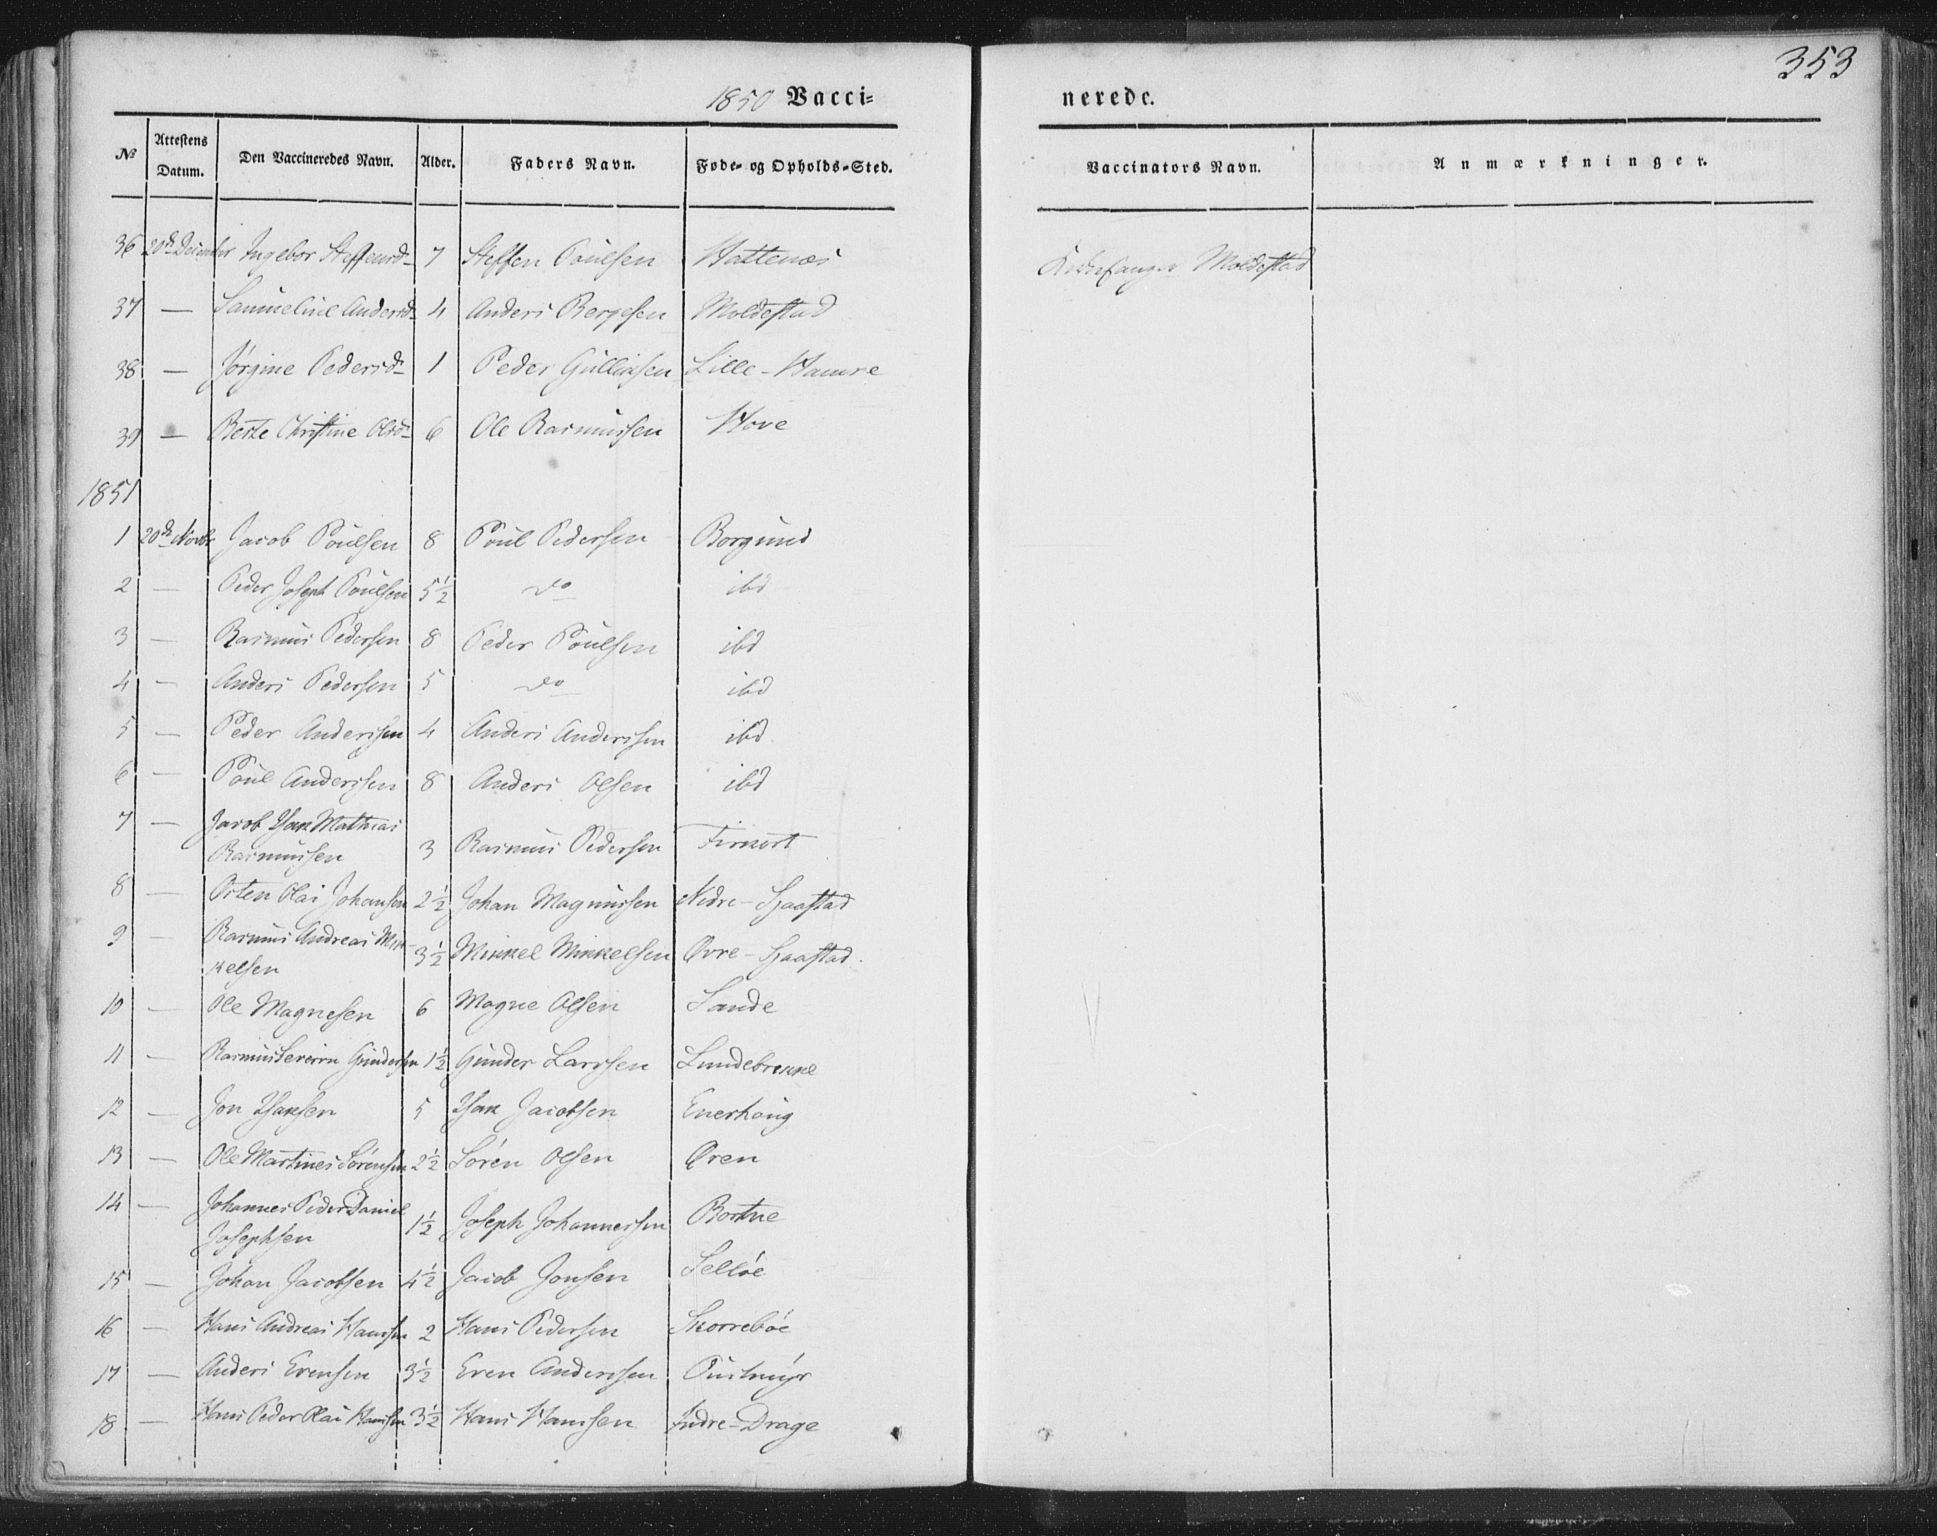 353
1850 Vacci=
nerede.
№ Attestens Datum. Den Vaccineredes Navn. Alder. Faders Navn. Føde- og Opholds-Sted. Vaccinators Navn. Anmærkninger.
36 20de December Ingebor Steffensd. 7 Steffen Poulsen Hattenæs Kirkesanger Moldestad
37 — Samueline Andersd. 4 Anders Børgesen Moldestad
38 — Jørgine Pedersd. 1 Peder Gulliksen Lille-Hamre
39 — Berte Christine Olsd. 6 Ole Rasmussen Hove
1851
1 20de Novbr Jacob Poulsen 8 Poul Pedersen Borgund
2 — Peder Joseph Poulsen 5½ do ibd
3 — Rasmus Pedersen 8 Peder Poulsen ibd
4 — Anders Pedersen 5 do ibd
5 — Peder Anderssen 4 Anders Anderssen ibd
6 — Poul Anderssen 8 Anders Olsen ibd
7 — Jacob Isak Mathias
Rasmussen 3 Rasmus Pedersen
8 — Orten Olai Johansen 2½ Johan Magnussen Nedre-Haastad
9 — Rasmus Andreas Mik-
kelsen 3½ Mikkel Mikkelsen Øvre-Haastad.
10 — Ole Magnesen 6 Magne Olsen Sande
11 — Rasmus Severin Gundersen 1½ Gunder Larssen Lundebrekke
12 — Jon Isaksen 5 Isak Jacobsen Enerhaug
13 — Ole Martines Sørensen 2½ Søren Olsen Øren
14 — Johannes Peder Daniel
Josephsen 1½ Joseph Johannessen Bortne
15 — Johan Jacobsen 4½ Jacob Jonsen Selløe
16 — Hans Andreas Hanssen 2 Hans Pedersen Skorrebøe
17 — Anders Erensen 3½ Eren Anderssen
18 — Hans Peder Olai Hanssen 3½ Hans Hanssen Indre-Drage